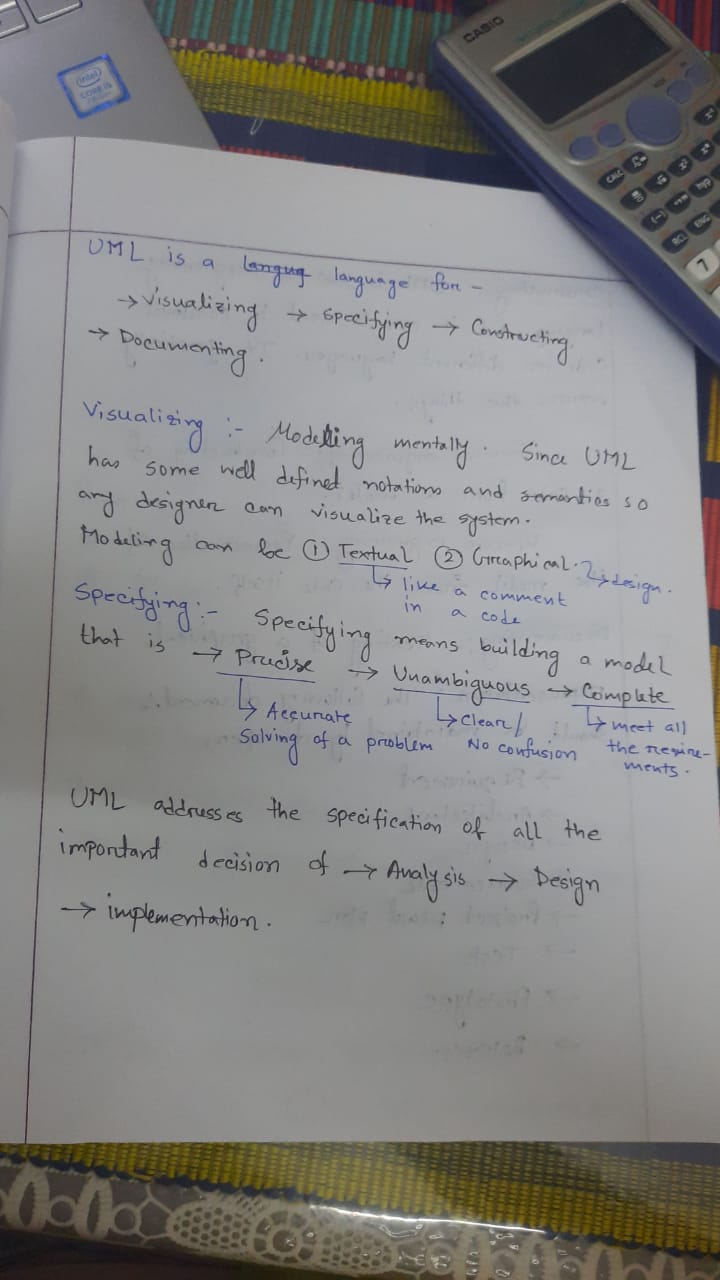 intel
CORE i5
CASIO
CALC
hyp
(-)
RCL
ENG
7
UML is a langug language for -
→ Visualizing → Specifying → Constructing
→ Documenting.
Visualizing :- Modelling mentally. Since UML
has some well defined notations and semantics so
any designer can visualize the system.
Modeling can be ① Textual ② Graphical. ↳ design.
↳ like a comment
in a code
Specifying :- Specifying means building a model
that is → Precise → Unambiguous → Complete
↳ Accurate ↳ Clear/ ↳ meet all
Solving of a problem No confusion the require-
ments.
UML addresses the specification of all the
important decision of → Analysis → Design
→ implementation.